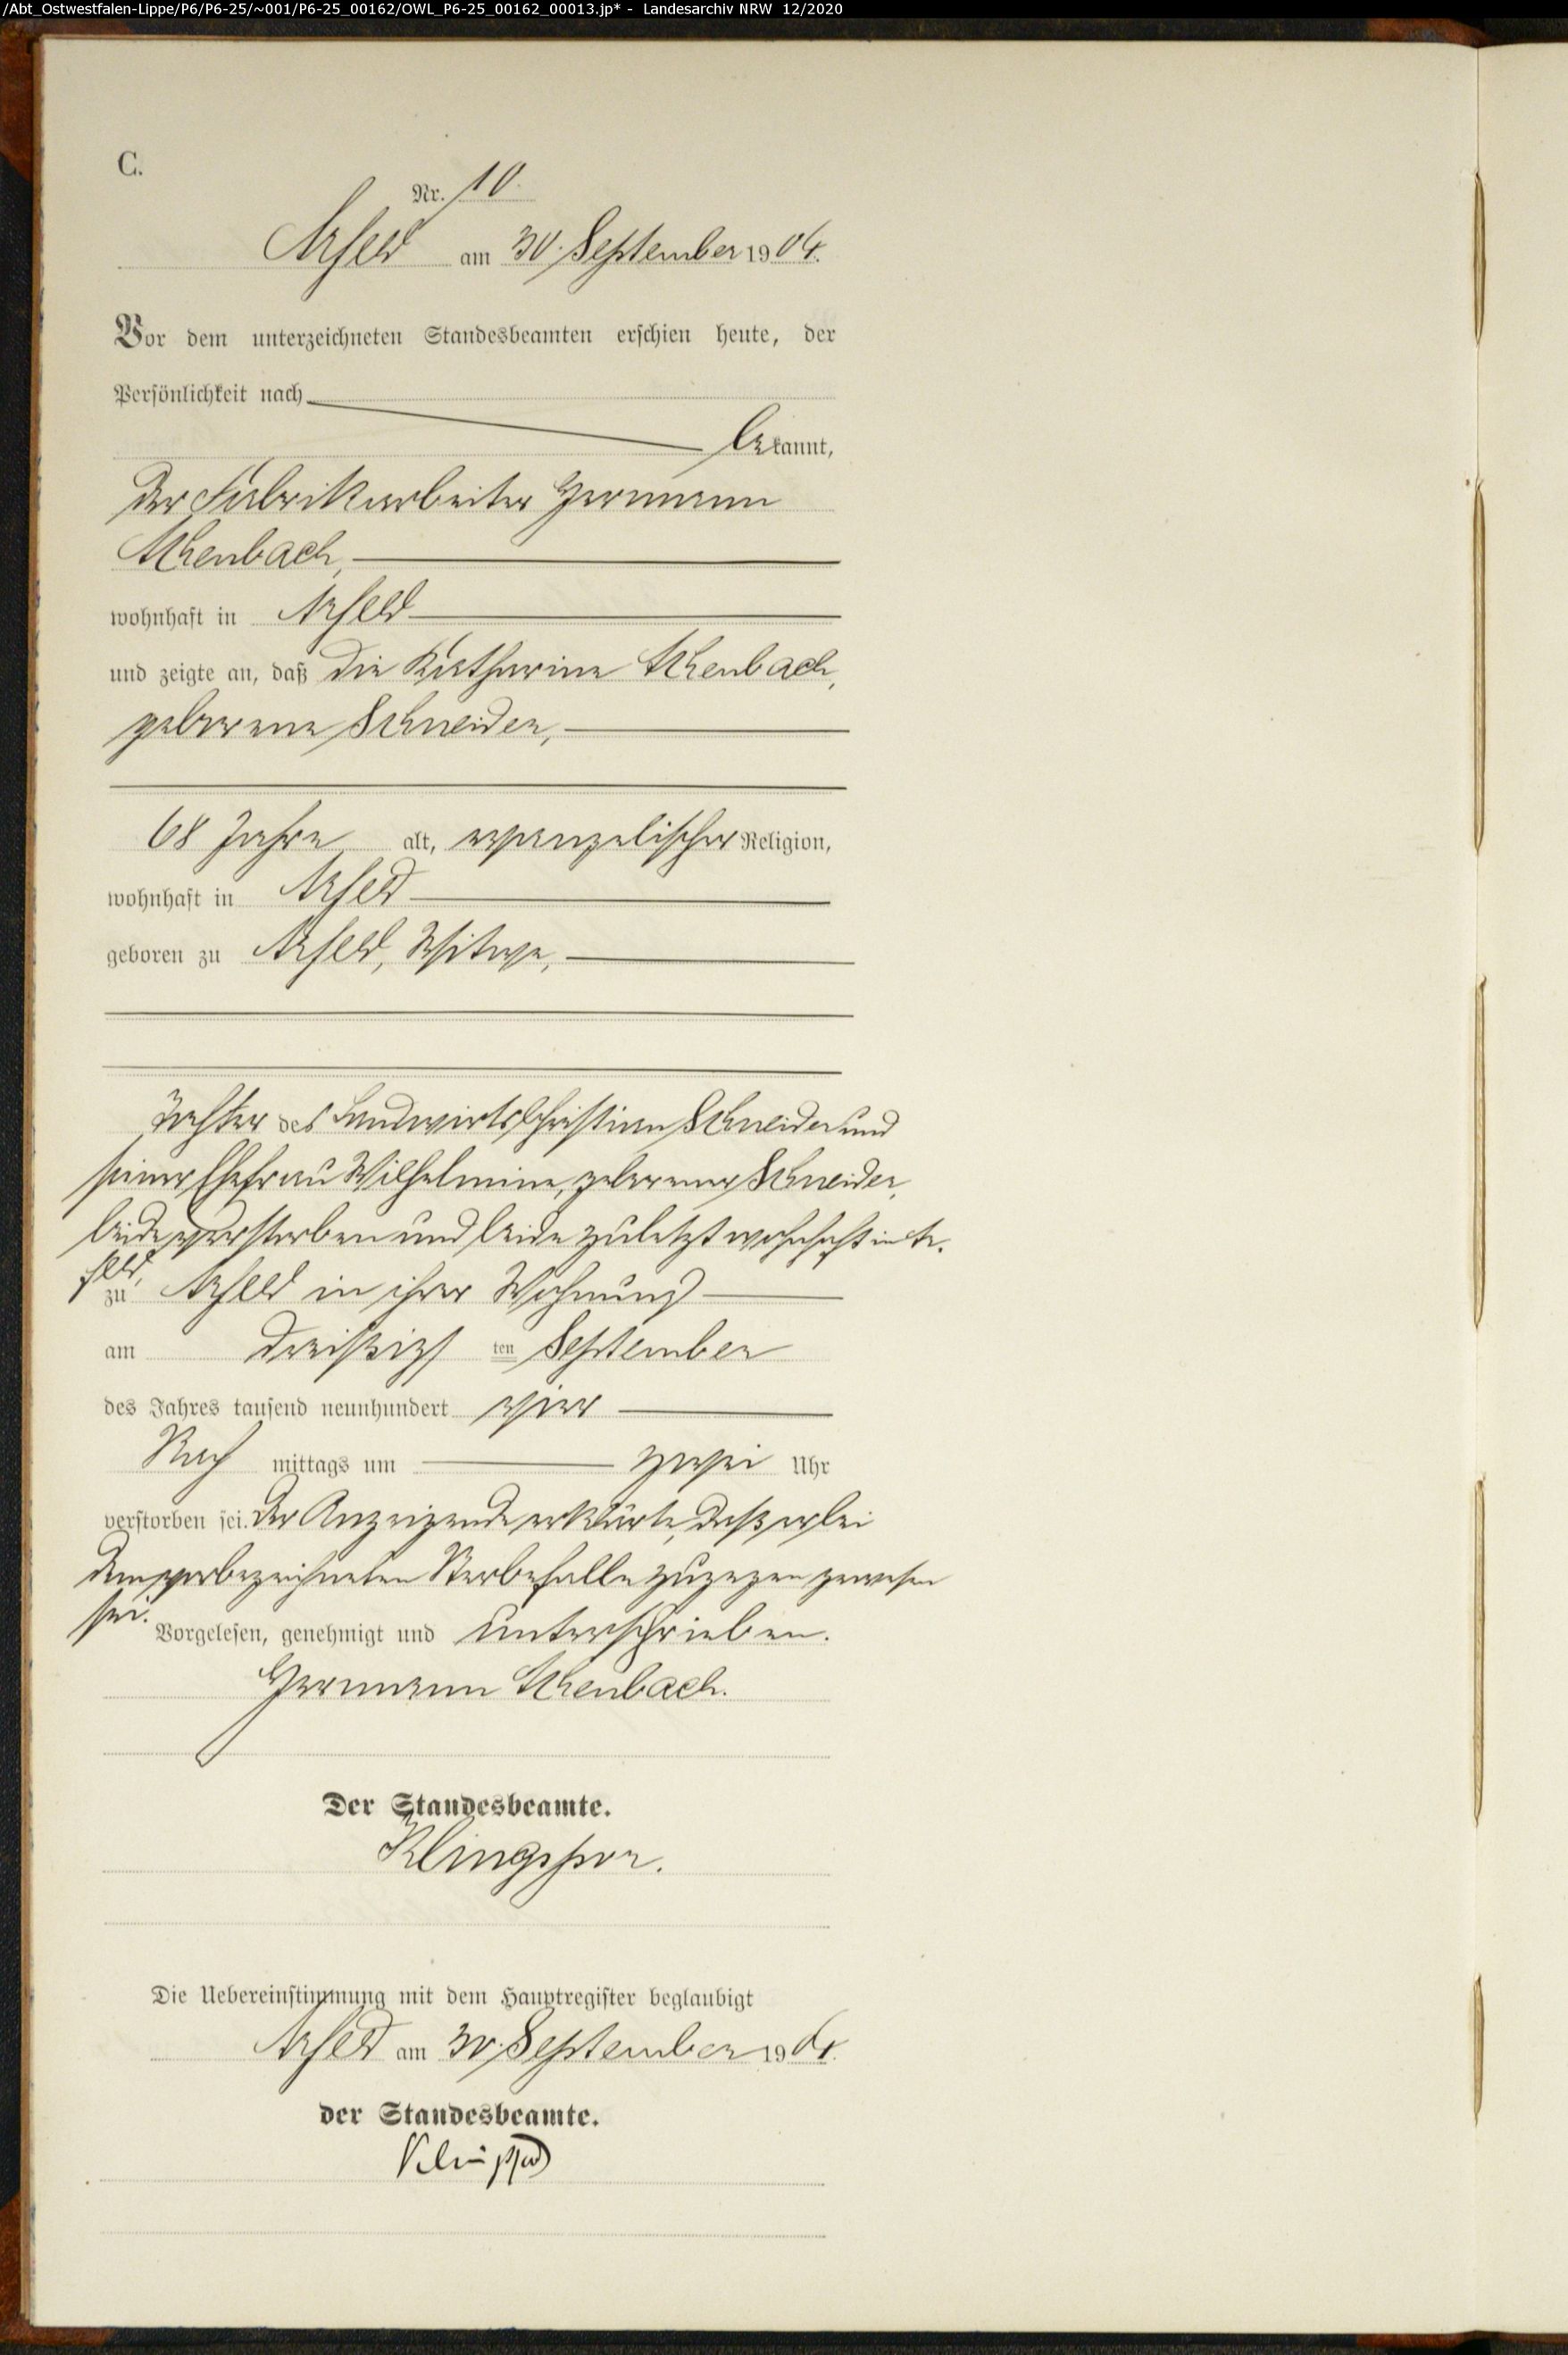 /Abt_Ostwestfalen-Lippe/P6/P6-25/~001/P6-25_00162/OWL_P6-25_00162_00013.jp* - Landesarchiv NRW 12/2020
C.
Nr. 10.
Arfeld am 30. September 1904.
Vor dem unterzeichneten Standesbeamten erschien heute, der
Persönlichkeit nach
bekannt,
der Fabrikarbeiter Hermann
Achenbach,
wohnhaft in Arfeld
und zeigte an, daß die Katharine Achenbach,
geborene Schneider,
68 Jahre alt, evangelischer Religion,
wohnhaft in Arfeld
geboren zu Arfeld, Witwe,
Tochter des Landwirts Christian Schneider und
seiner Ehefrau Wilhelmine, geborener Schneider,
beide verstorben und beide zuletzt wohnhaft in Ar-
feld,
zu Arfeld in ihrer Wohnung
am dreißigs ten September
des Jahres tausend neunhundert vier
Nach mittags um zwei Uhr
verstorben sei. Der Anzeigende erklärte, daß er bei
dem vorbezeichneten Sterbefalle zugegen gewesen
sei.
Vorgelesen, genehmigt und unterschrieben.
Hermann Achenbach.
Der Standesbeamte.
Klingspor.
Die Uebereinstimmung mit dem Hauptregister beglaubigt
Arfeld am 30. September 1904.
der Standesbeamte.
Klingspor